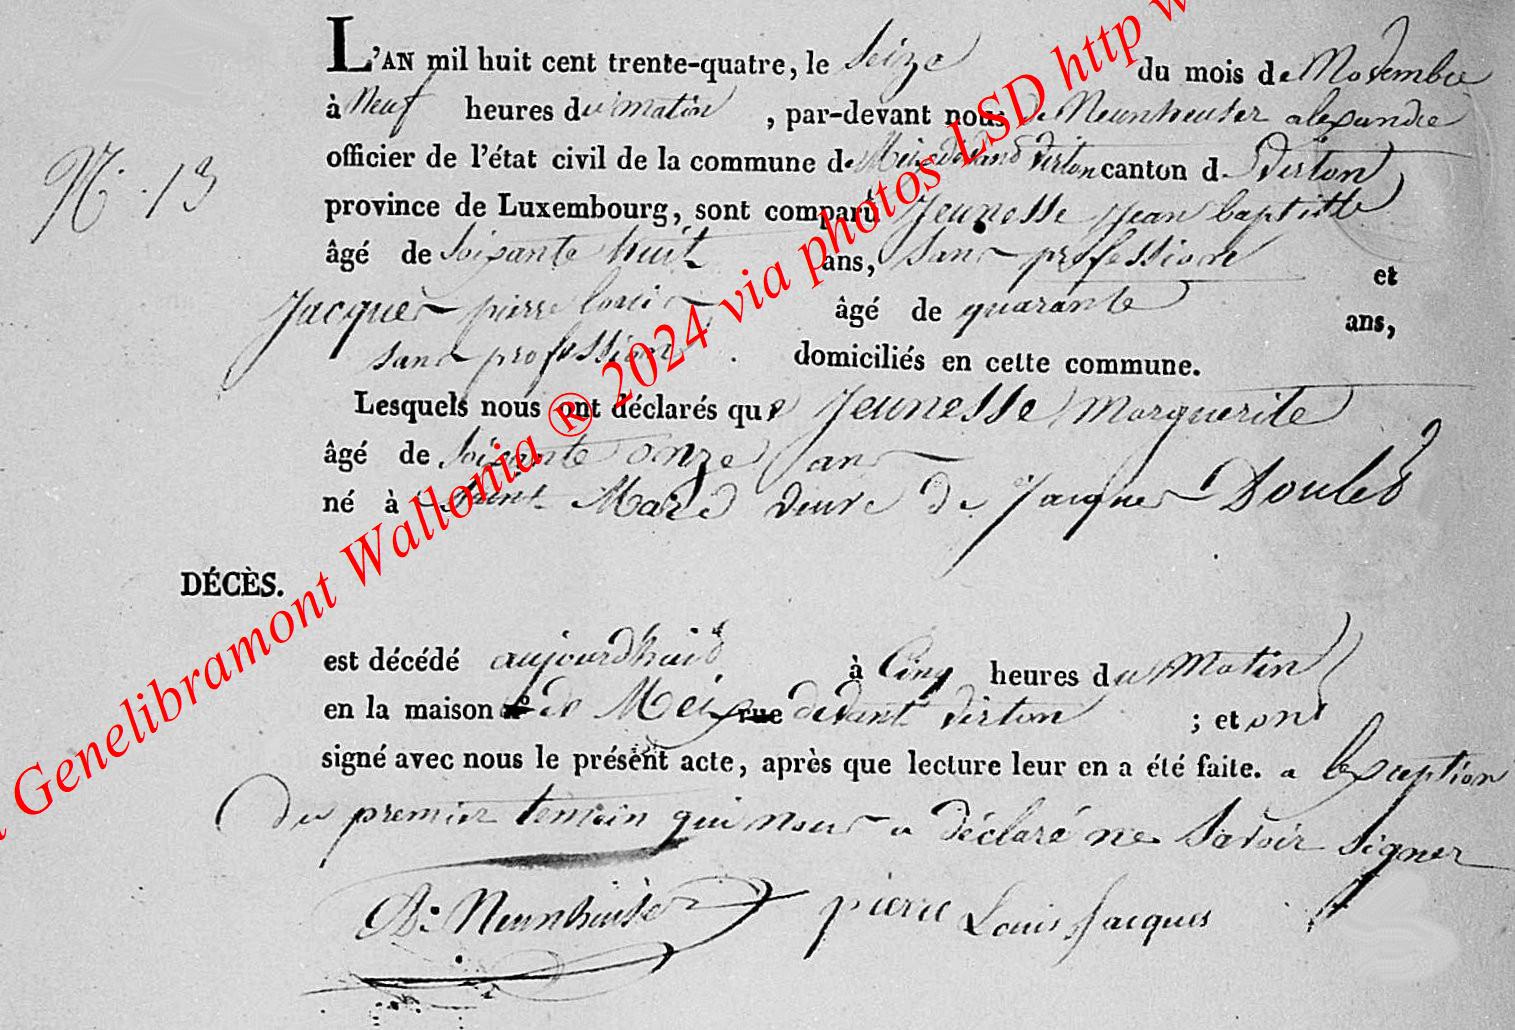 L'AN mil huit cent trente-quatre, le Seize du mois de Novembre
à Neuf heures du matin, par-devant nous de Neunheuser alexandre
officier de l'état civil de la commune de Meix devant Virton canton de Virton
province de Luxembourg, sont comparu Jeunesse Jean baptiste
N. 13
âgé de Soixante huit ans, sans profession et
Jacques pierre louis âgé de quarante ans,
sans profession domiciliés en cette commune.
Lesquels nous ont déclarés que Jeunesse Marguerite
âgé de Soixante onze ans
né à Saint Mard veuve de Jacques
DÉCÈS.
est décédé aujourdhuid à Cinq heures du Matin
en la maison n° de Meix rue devant Virton ; et ont
signé avec nous le présent acte, après que lecture leur en a été faite. a lexception
du premier temoin qui nous a déclaré ne Savoir Signer
Neunheuser pierre Louis Jacques
Genelibramont Wallonia ® 2024 via photos LSD http